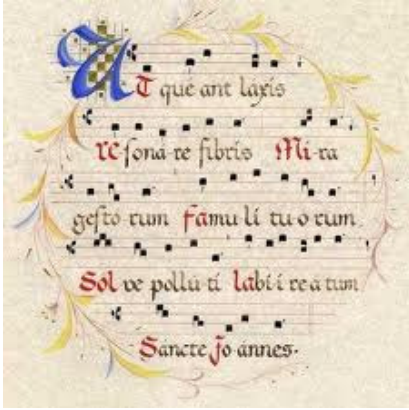 UT que ant laxis
reſona·re fibris Mi·ra
geſto·rum famu·li tu·o·rum
Sol·ve pollu·ti labi·i re·a·tum
Sancte Jo·annes·